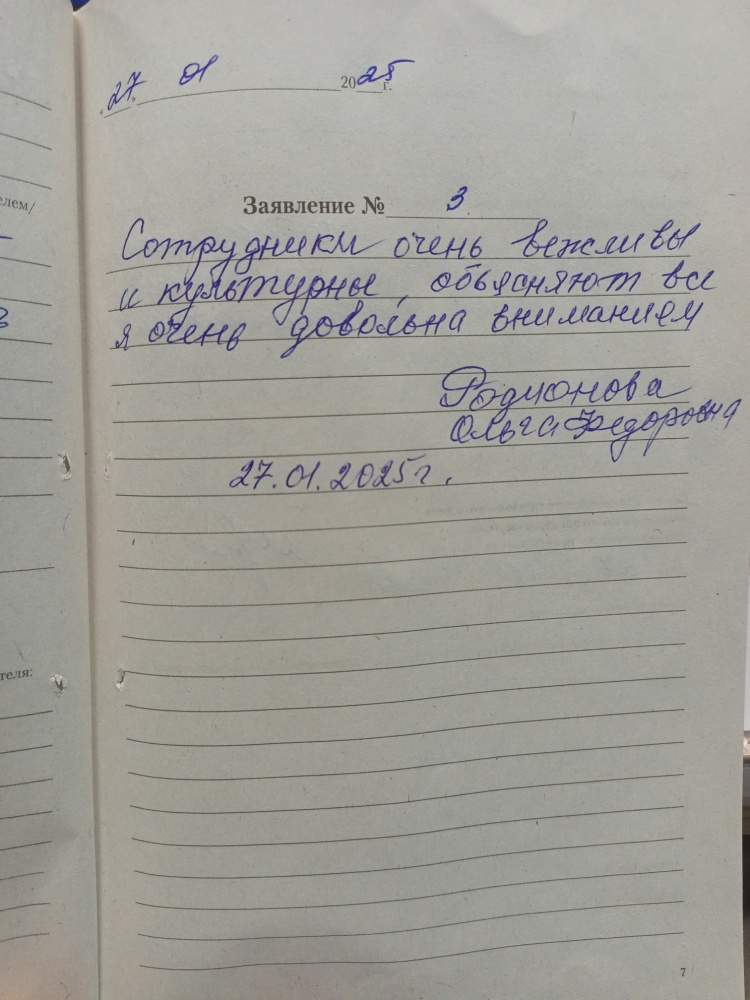 27. 01 2025г.
Заявление № 3
Сотрудники очень вежливы
и культурны, объясняют все
я очень довольна вниманием
Родионова
Ольга Федоровна
27.01.2025г.
елем/
теля:
7